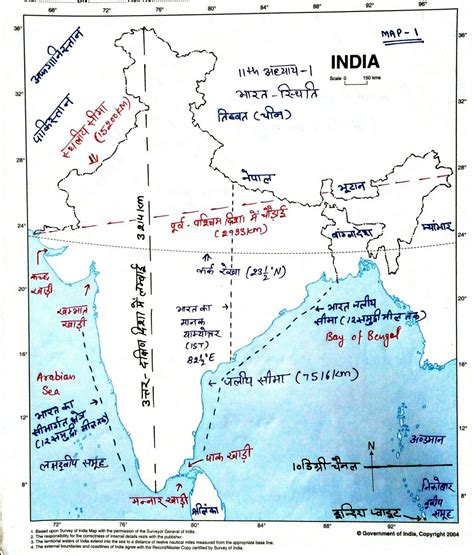 68° 72° 76° 80° 84° 88° 92° 96°
36°
MAP-1
INDIA
Scale 0 150 kms
36°
अफगानिस्तान
11th अध्याय-1
भारत-स्थिति
तिब्बत (चीन)
32°
32°
पाकिस्तान
स्थलीय सीमा
(15200KM)
28°
28°
नेपाल
भूटान
उत्तर-दक्षिण दिशा में लम्बाई 3214KM
पूर्व-पश्चिम दिशा में चौड़ाई
(2933KM)
बांग्लादेश
म्यांमार
24°
24°
कच्छ
खाड़ी
कर्क रेखा (23½°N)
खम्भात
खाड़ी
भारत का
मानक
याम्योत्तर
(IST)
82½°E
भारत जलीय
सीमा (12 समुद्री मील तक)
Bay of Bengal
20°
Arabian
Sea
जलीय सीमा (7516KM)
16°
16°
भारत का
सीमांगत क्षेत्र
(12 समुद्री मील तक)
लक्षद्वीप समूह
पाक खाड़ी
अण्डमान
N
12°
12°
10 डिग्री चैनल
मन्नार खाड़ी
श्रीलंका
निकोबार
द्वीप
समूह
8°
8°
इन्दिरा प्वाइंट
72° 76° 80° 84° 92°
© Government of India, Copyright 2004
1. Based upon Survey of India Map with the permission of the Surveyor General of India.
2. The responsibility for the correctness of internal details rests with the publisher.
3. The territorial waters of India extend into the sea to a distance of twelve nautical miles measured from the appropriate base line.
4. The external boundaries and coastlines of India agree with the Record/Master Copy certified by Survey of India.